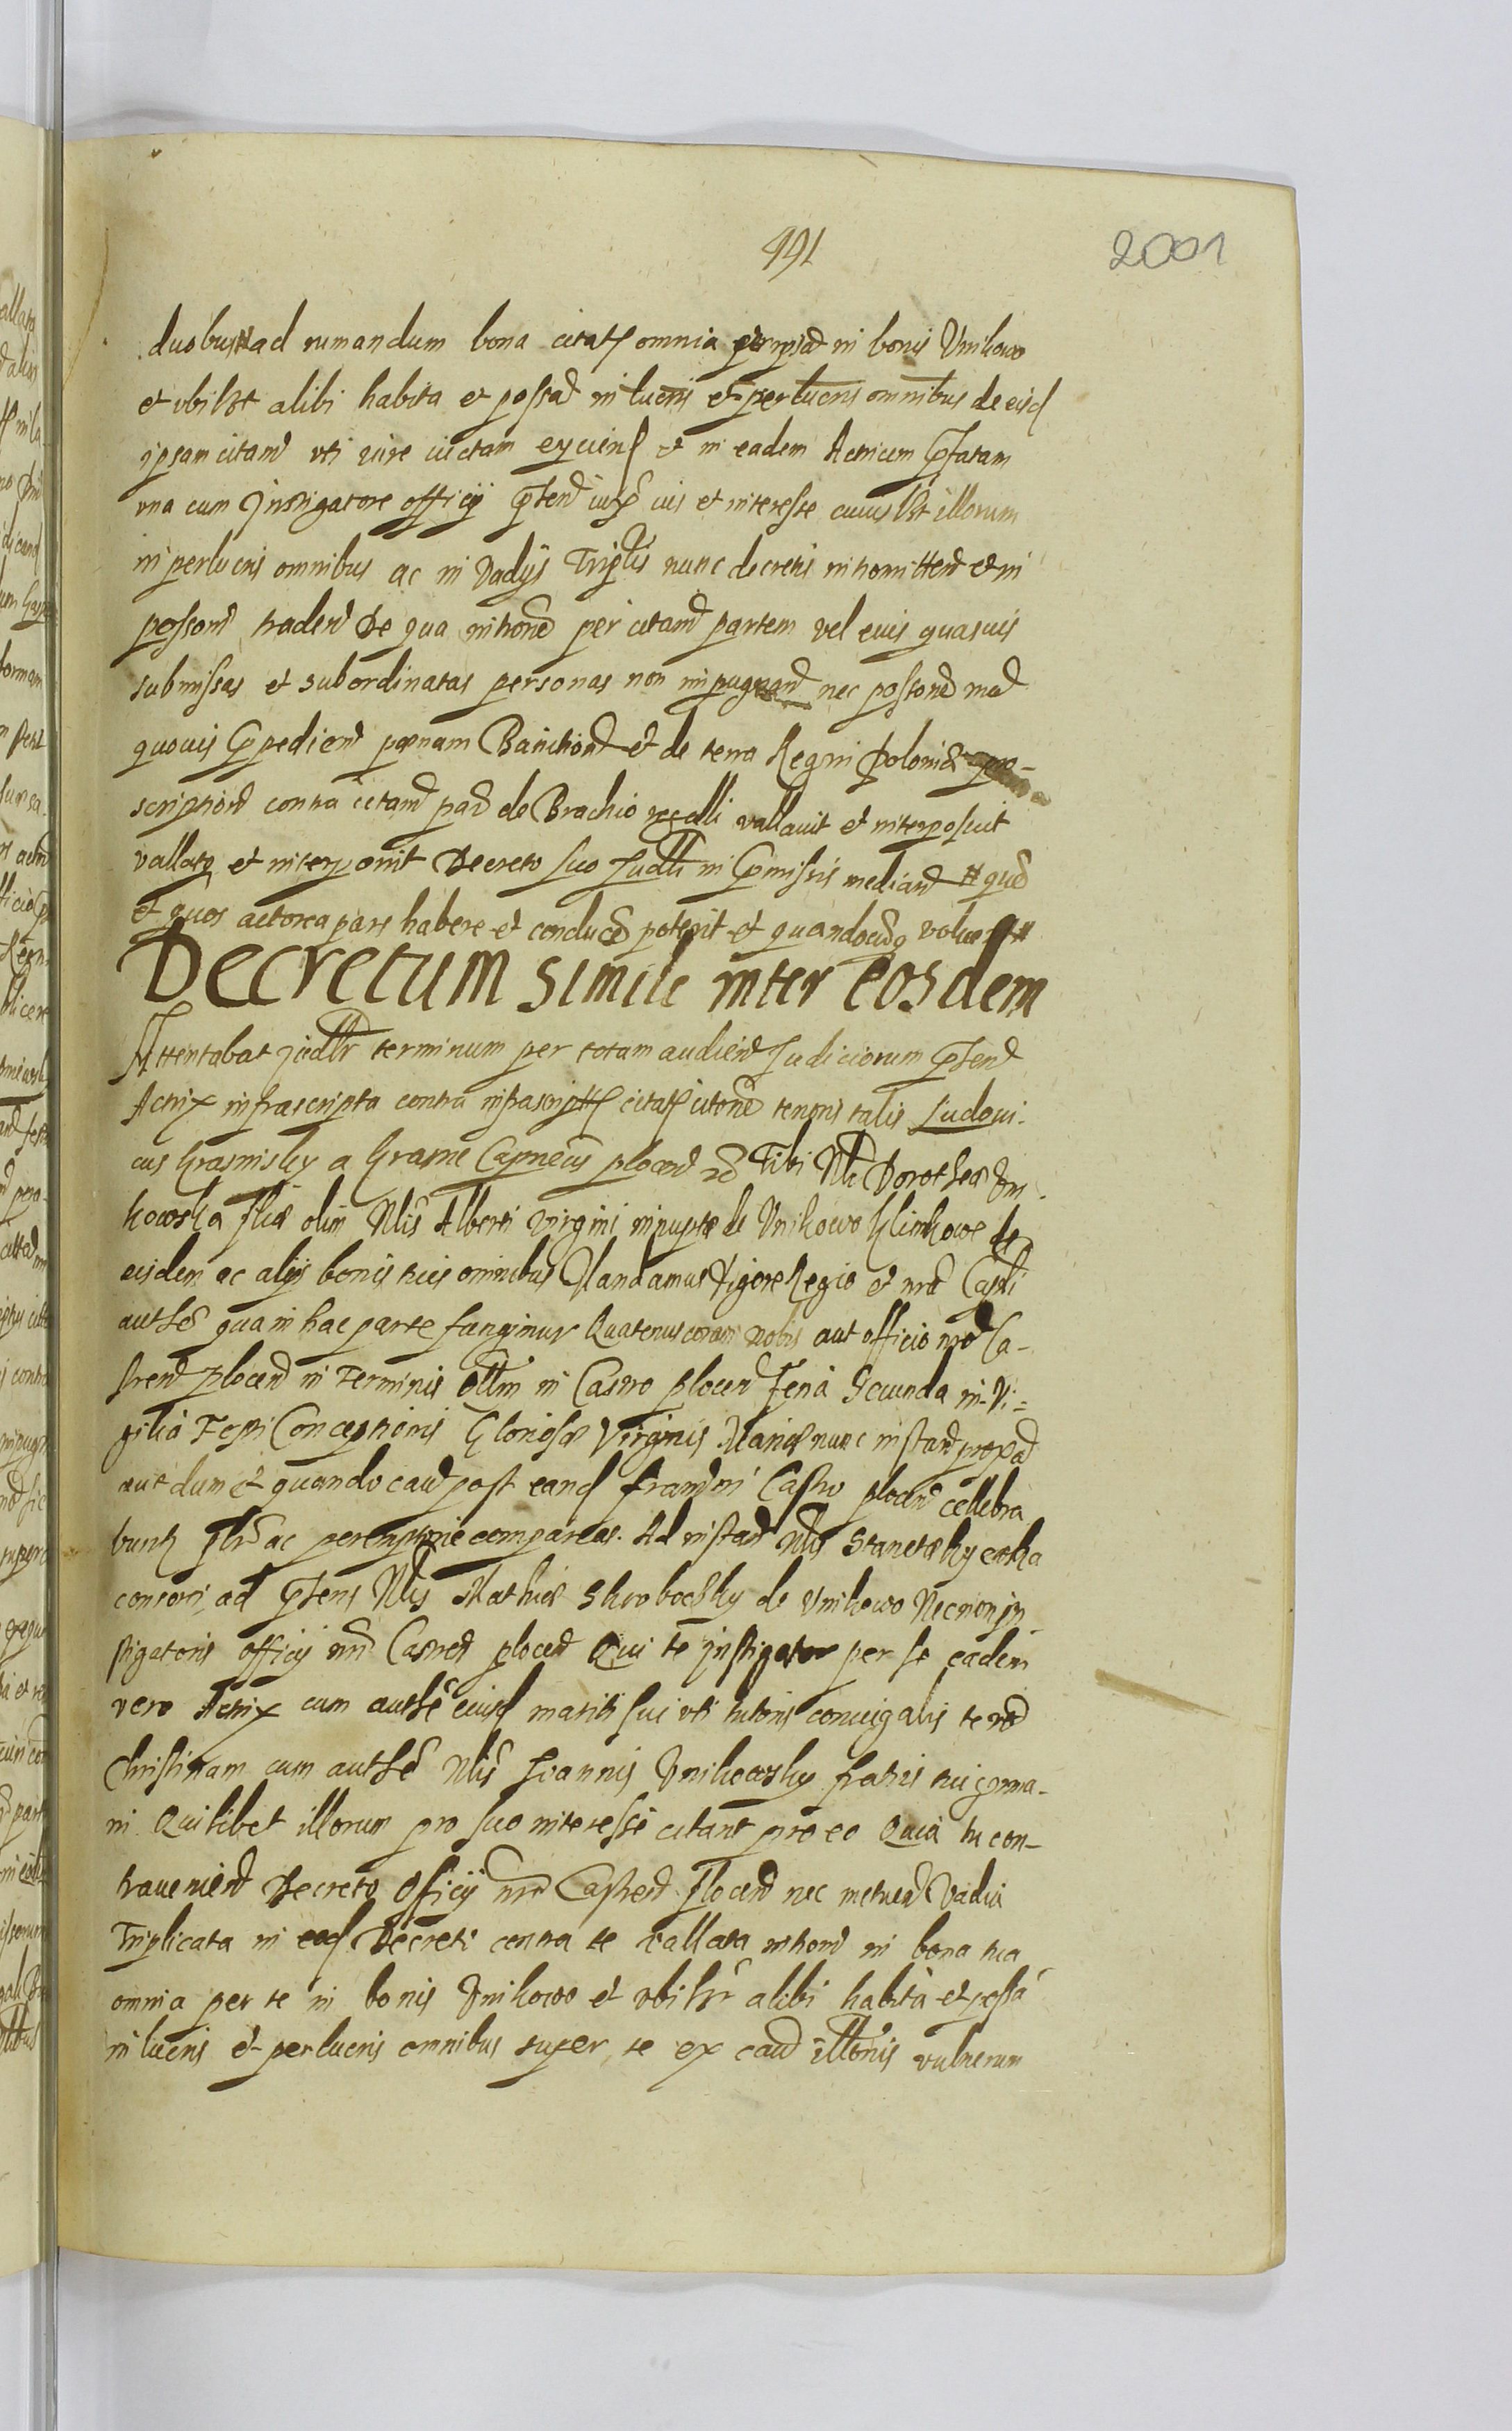 491
2001
duobus ad rumandum bona citatę omnia per ipsad in bonis Vnikowo
et vbilbt alibi habita et possad in lucris et perlucris omnibus de eisd
ipsam citand vti iure victam eycienę et in eadem Actricem pntatam
vna cum Instigatore officij pntend iuxta ius et interesse cuiuslibt illorum
in perlucris omnibus ac in Vadijs Triplis nunc decretis intromittend et in
posson̄d tradend De qua intronē per citand partem vel euis quasuis
submissas et subordinatas personas non impugnand nec possonē mad
quouis Gpediend pœnam Banitiond et de terra Regni Poloniæ pro-
scriptiond contra citand pad de Brachio regalli vallauit et interposuit
vallatq et interponit Decreto suo Judlli in Gmissis mediand # quē
et quos actorea pars habere et conducē poterit et quandocūq voluerit #
Decretum simile inter eosdem
Attentabat judlr terminum per totam audiend Judiciorum pntend
Actrix infrascripta contra infrascriptę citatę citonē tenoris talis Ludoui-
cus Krasnisky a Krasne Capnēus plocend rē Tibi Nli Dorotheæ Vni-
kowska filiæ olim Nlis Alberti virgini innuptæ de Vnikowo Klinkowe de
eisdem ac alijs bonis tuis omnibus Mandamus Vigore Regio et nrā Capti
authē qua in hac parte fungimur Quatenus coram nobis aut officio nrō Ca-
strend plocend in Terminis Ottm in Castro plocend Feria Secunda in Vi-
gilia Festi Conceptionis Gloriosæ Virginis Mariæ nunc instand proxad
aut dum et quando caud post eand fraudni Castro plocend cellebra
buntę plid ac peremptorie compareas. Ad instand Nlis Stanetæ
consori ad pntens Nlis Mathiæ Skrobocky de Vnikowo Necnon in
stigatoris officij nrī Castred plocend Qui te Instigator per se eadem
vero Actrix cum authē eiusd mariti sui vti tutoris coniugalis te nrē
Christinam cum authē Nlis Joannis Vnikowsky fratris tui germa-
ni Quilibet illorum pro suo interesse citant pro eo Quia tu con-
traueniend Decreto Officij nrī Castrend Plocend nec metuend Vadia
Triplicata in eod Decreti contra te vallata introni in bona tua
omnia per te in bonis Vnikowo et vbilbt alibi habita et possa
in lucris et perlucris omnibus super te ex caud illonis vulnerum